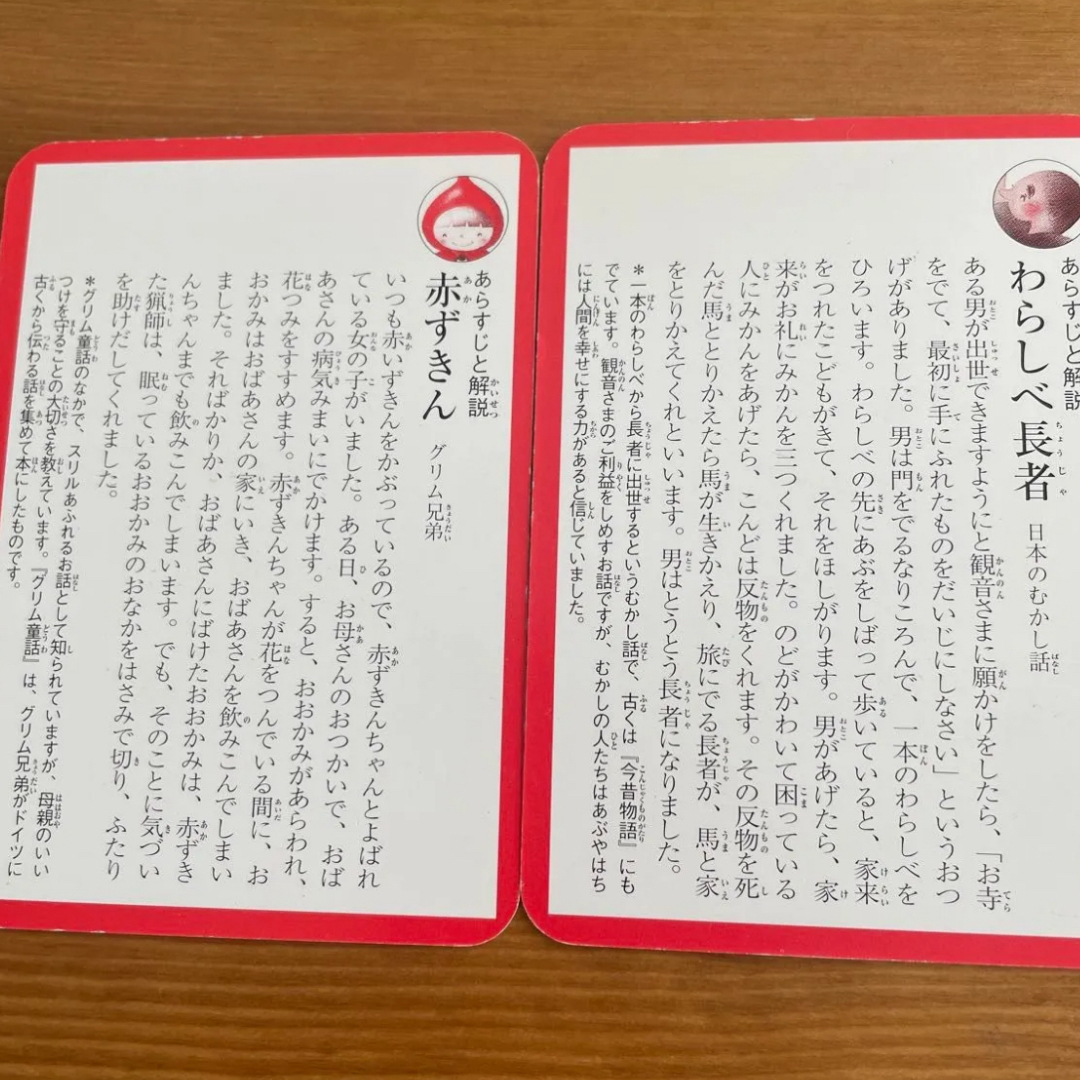 あらすじと解説
わらしべ長者 日本のむかし話
ある男が出世できますようにと観音さまに願かけをしたら、「お寺
をでて、最初に手にふれたものをだいじにしなさい」というおつ
げがありました。男は門をでるなりころんで、一本のわらしべを
ひろいます。わらしべの先にあぶをしばって歩いていると、家来
をつれたこどもがきて、それをほしがります。男があげたら、家
来がお礼にみかんを三つくれました。のどがかわいて困っている
人にみかんをあげたら、こんどは反物をくれます。その反物を死
んだ馬ととりかえたら馬が生きかえり、旅にでる長者が、馬と家
をとりかえてくれといいます。男はとうとう長者になりました。
＊一本のわらしべから長者に出世するというむかし話で、古くは『今昔物語』にも
でています。観音さまのご利益をしめすお話ですが、むかしの人たちはあぶやはち
には人間を幸せにする力があると信じていました。
あらすじと解説
赤ずきん グリム兄弟
いつも赤いずきんをかぶっているので、赤ずきんちゃんとよばれ
ている女の子がいました。ある日、お母さんのおつかいで、おば
あさんの病気みまいにでかけます。すると、おおかみがあらわれ、
花つみをすすめます。赤ずきんちゃんが花をつんでいる間に、お
おかみはおばあさんの家にいき、おばあさんを飲みこんでしまい
ました。そればかりか、おばあさんにばけたおおかみは、赤ずき
んちゃんまでも飲みこんでしまいます。でも、そのことに気づい
た猟師は、眠っているおおかみのおなかをはさみで切り、ふたり
を助けだしてくれました。
＊グリム童話のなかで、スリルあふれるお話として知られていますが、母親のいい
つけを守ることの大切さを教えています。『グリム童話』は、グリム兄弟がドイツに
古くから伝わる話を集めて本にしたものです。